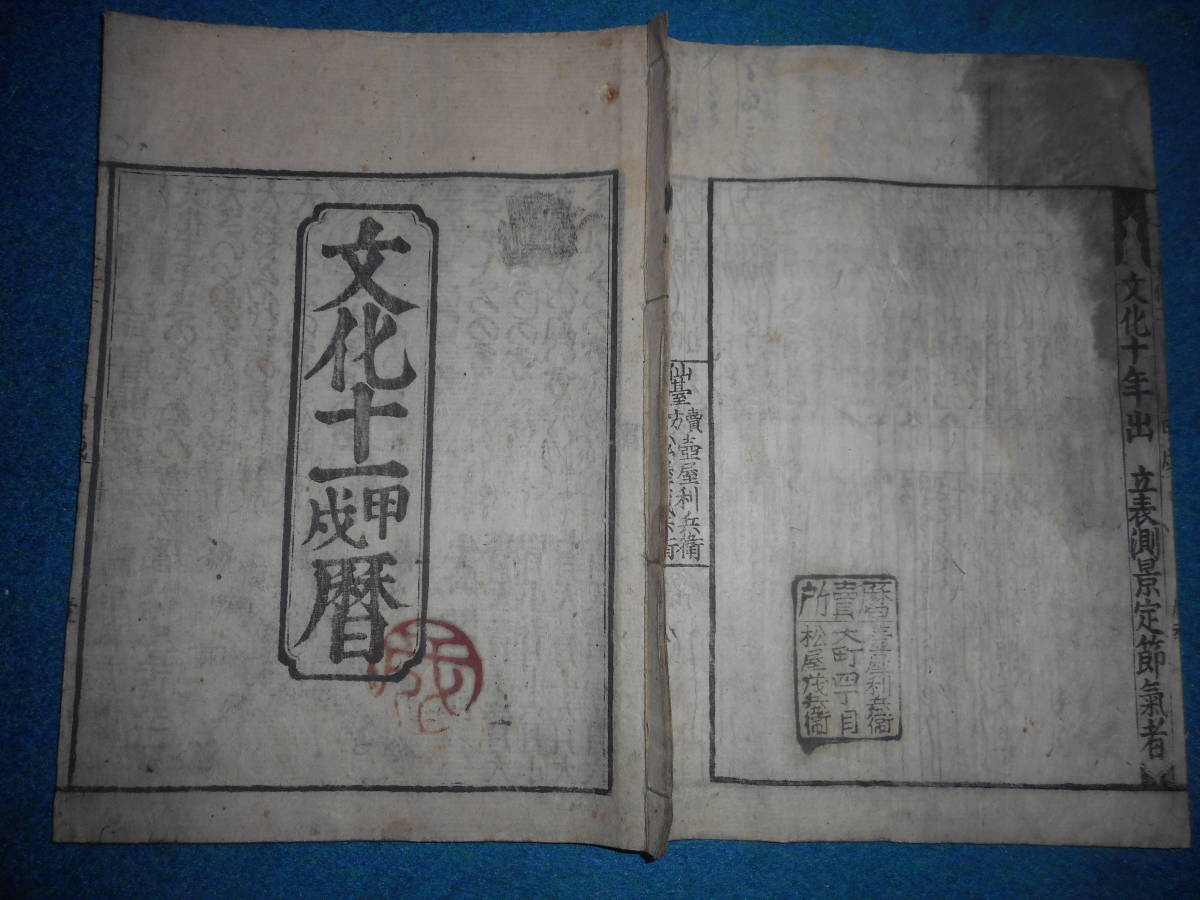 文化十年出 立表測景定節氣者
暦賣所
壷屋利兵衛
大町四丁目
松屋茂兵衛
仙臺
賣
壺屋利兵衛
文化十一甲戌暦